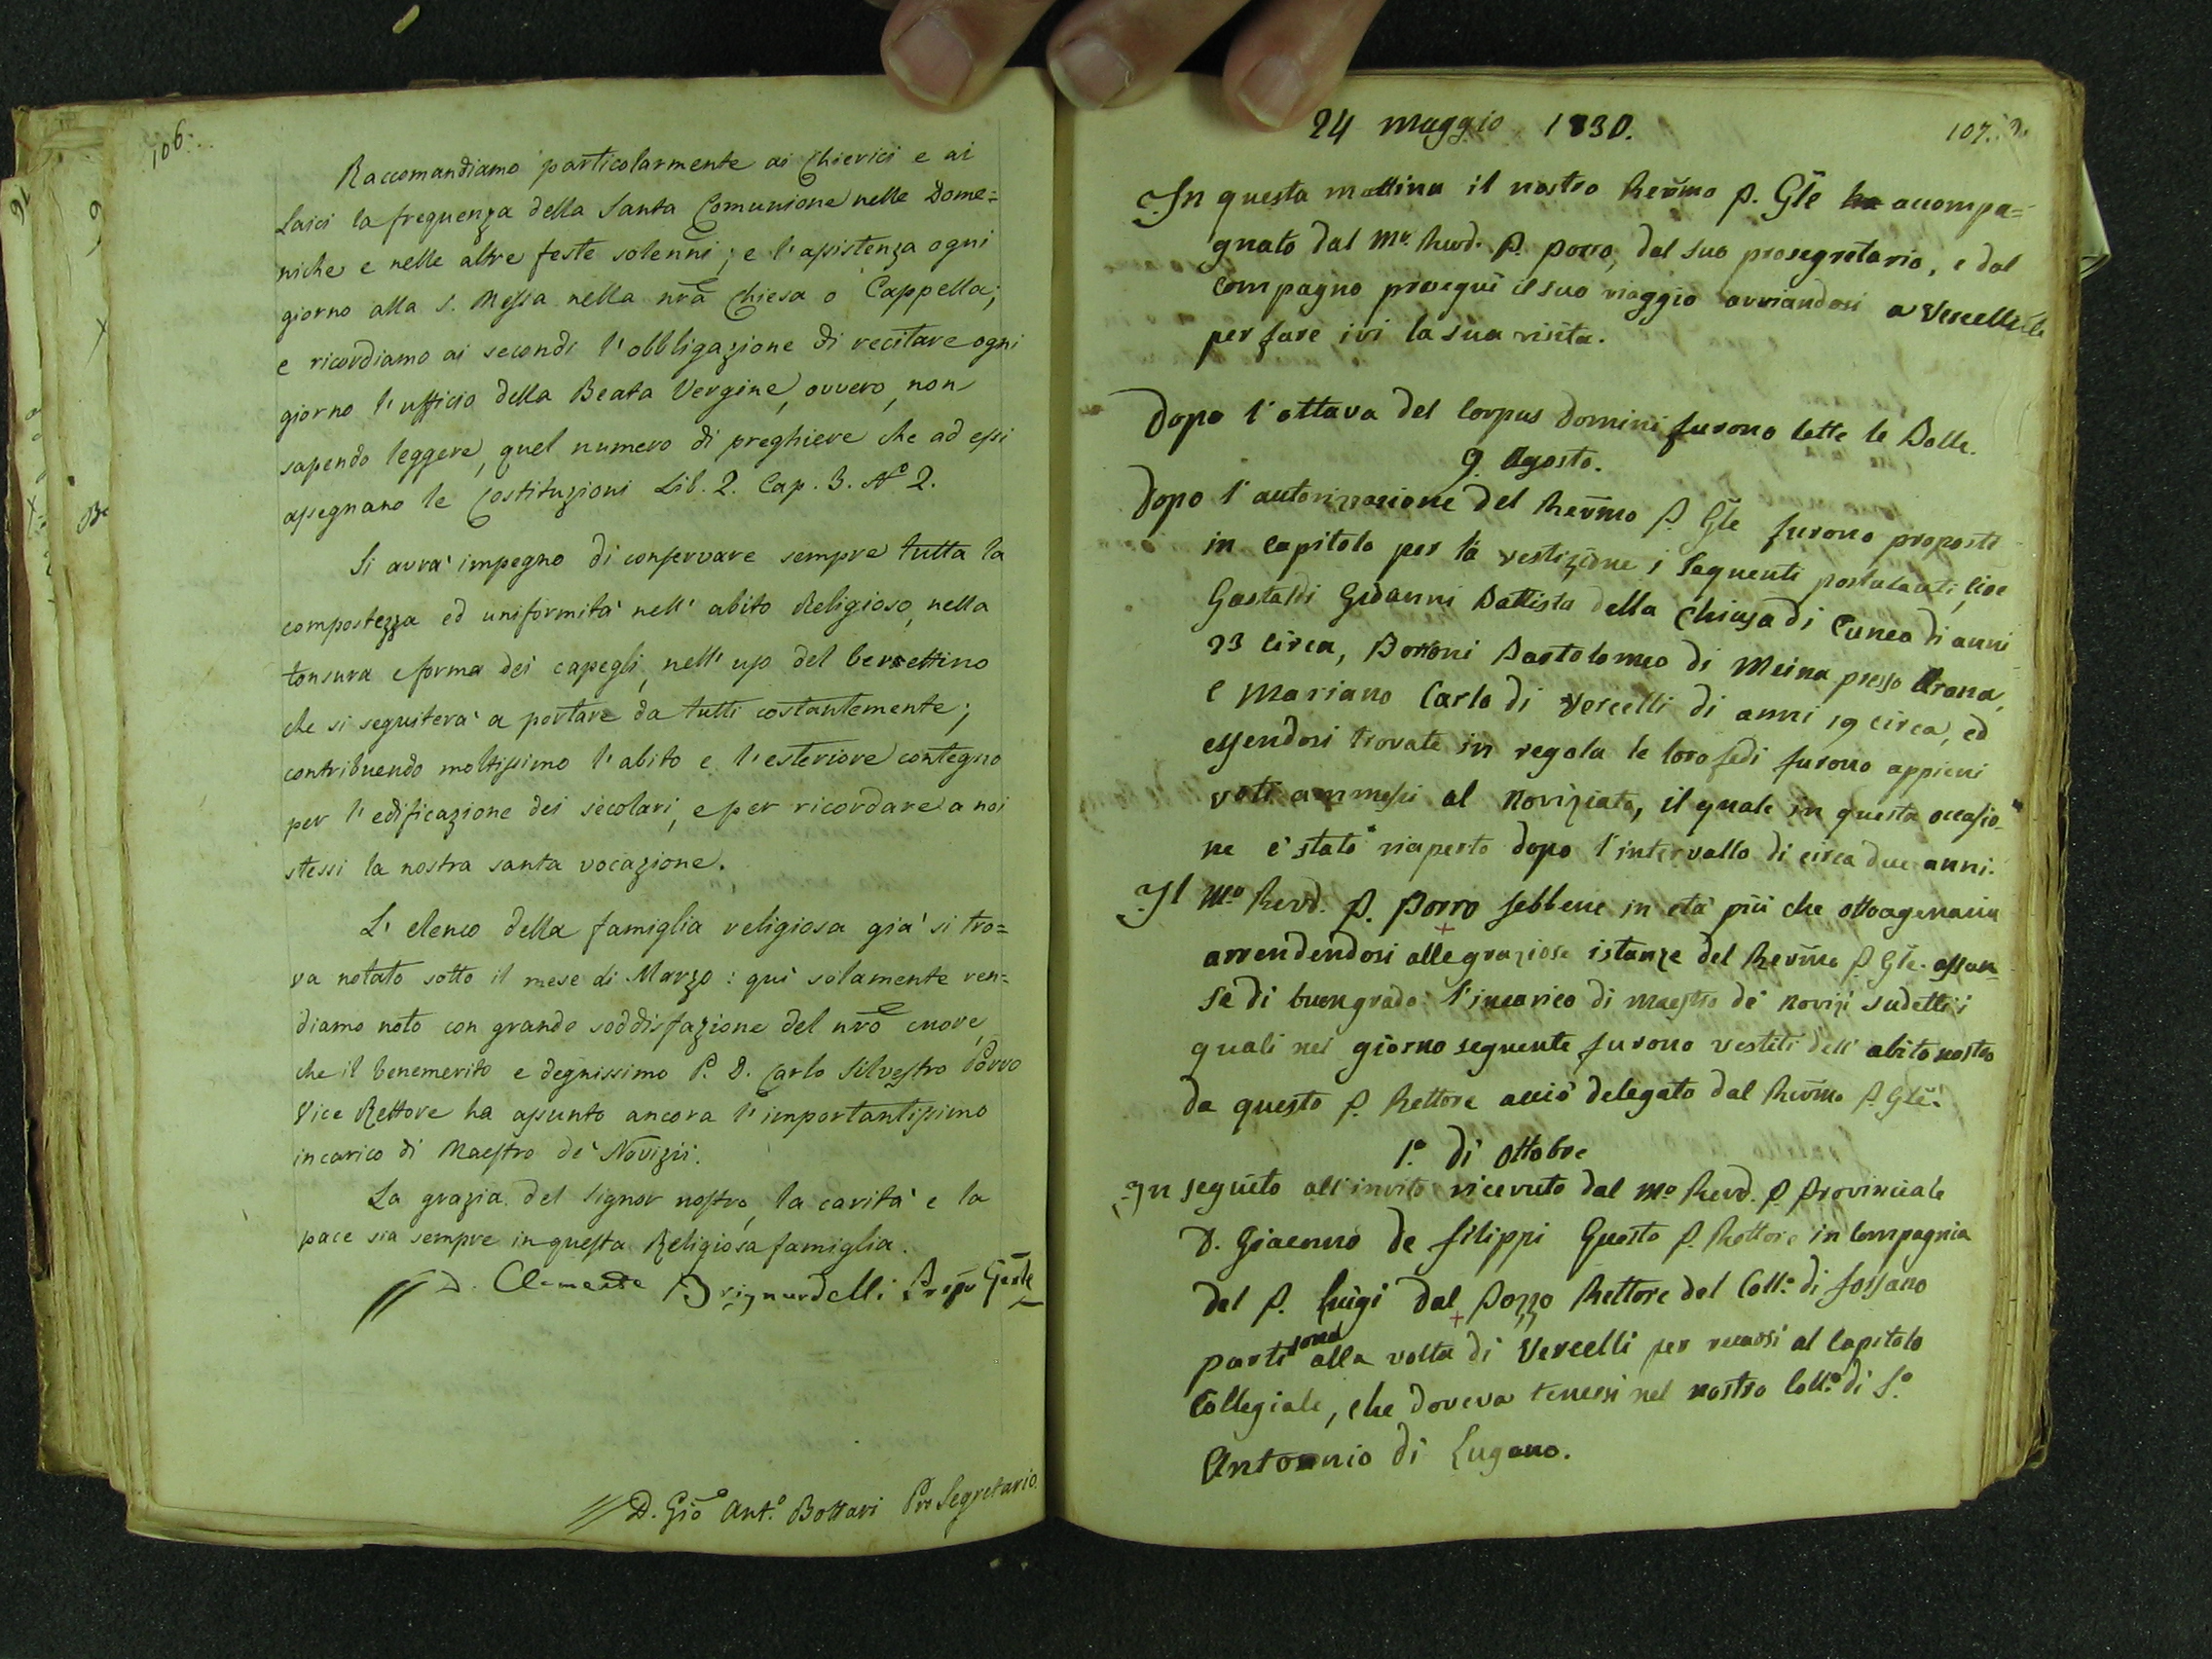 106.
Raccomandiamo particolarmente ai Chierici e ai
Laici la frequenza della Santa Comunione nelle Dome=
niche e nelle altre feste solenni; e l'assistenza ogni
giorno alla S. Messa nella nrã Chiesa o Cappella;
e ricordiamo ai secondi l'obbligazione di recitare ogni
giorno l'ufficio della Beata Vergine, ovvero, non
sapendo leggere, quel numero di preghiere che ad essi
assegnano le Costituzioni Lib. 2. Cap. 3. No 2.
Si avrà impegno di conservare sempre tutta la
compostezza ed uniformità nell' abito Religioso, nella
tonsura e forma dei capegli, nell' uso del berrettino
che si seguiterà a portare da tutti costantemente;
contribuendo moltissimo l'abito e l'esteriore contegno
per l'edificazione dei secolari, e per ricordare a noi
stessi la nostra santa vocazione.
L'elenco della famiglia religiosa già si tro=
va notato sotto il mese di Marzo: qui solamente ren=
diamo noto con grande soddisfazione del nrõ cuore,
che il benemerito e degnissimo P. D. Carlo Silvestro Porro
Vice Rettore ha assunto ancora l'importantissimo
incarico di Maestro de' Novizii.
La grazia del Signor nostro, la carità e la
pace sia sempre in questa Religiosa famiglia.
// D. Clemente Brignardelli Prepo Genle
// D. Gio Ant.o Bottari Pro Segretario.
107.
24 Maggio 1830.
In questa mattina il nostro Rev̄mo P. Gl̃e ha accompa=
gnato dal Mo. Revd. P. Porro, dal suo prosegretario, e dal
compagno proseguì il suo viaggio avviandosi a Vercelli
per fare ivi la sua visita.
Dopo l'ottava del Corpus Domini furono lette le Bolle.
9. Agosto.
Dopo l'autorizzazione del Rev̄mo P. Gl̃e furono proposti
in capitolo per la vestizione i seguenti postulanti, cioe
Gastaldi Giovanni Battista della Chiusa di Cuneo di anni
23 circa, Bottoni Bartolomeo di Meina presso Arona,
e Mariano Carlo di Vercelli di anni 19 circa, ed
essendosi trovate in regola le loro fedi furono appieni
voti ammessi al Noviziato, il quale in questa occasio=
ne è stato riaperto dopo l'intervallo di circa due anni.
Il Mo Revd. P. Porro sebbene in età più che ottoagenaria
arrendendosi alle graziose istanze del Rev̄mo P. Gl̃e. assun
se di buon grado l'incarico di maestro de' novizi sudetti i
quali nel giorno seguente furono vestiti dell' abito nostro
da questo P. Rettore acciò delegato dal Rev̄mo P. Gl̃e.
1.o di Ottobre
In seguito all'invito ricevuto dal Mo Revd. P. Provinciale
D. Giacomo de Filippi questo P. Rettore in compagnia
del P. Luigi Dal Pozzo Rettore del Coll.o di Fossano
partirono alla volta di Vercelli per recarsi al Capitolo
Collegiale, che doveva tenersi nel nostro Coll.o di S.o
Antonnio di Lugano.